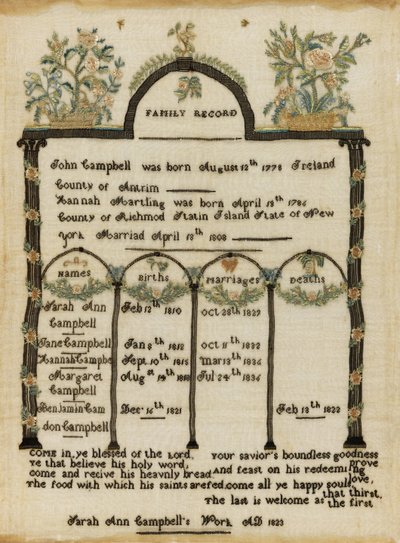 FAMILY RECORD
John Campbell was born August 12th 1778 Ireland
County of Antrim
Hannah Martling was born April 18th 1786
County of Richmod Statin Island State of New
York Marriad April 18th 1808
NAMES BIRTHS MARRIAGES DEATHS
Sarah Ann Feb 12th 1810 oct 28th 1829
Campbell
Jane Campbell Jan 8th 1812 oct 11th 1832
Hannah Campbe Sept 10th 1815 Mar 13th 1836
Margaret Augst 14th Jul 24th 1836
Campbell
Benjamin Cam Dec 16th 1821 Feb 18th 1822
don Campbell
COME in ye blessed of the Lord, Your savior's boundless goodness
Ye that believe his holy word, prove
come and recive his heavnly bread And feast on his redeeming
The food with which his saints are fed, come all ye happy souls love,
that thirst,
The last is welcome as the first
Sarah Ann Campbell's Work AD 1823